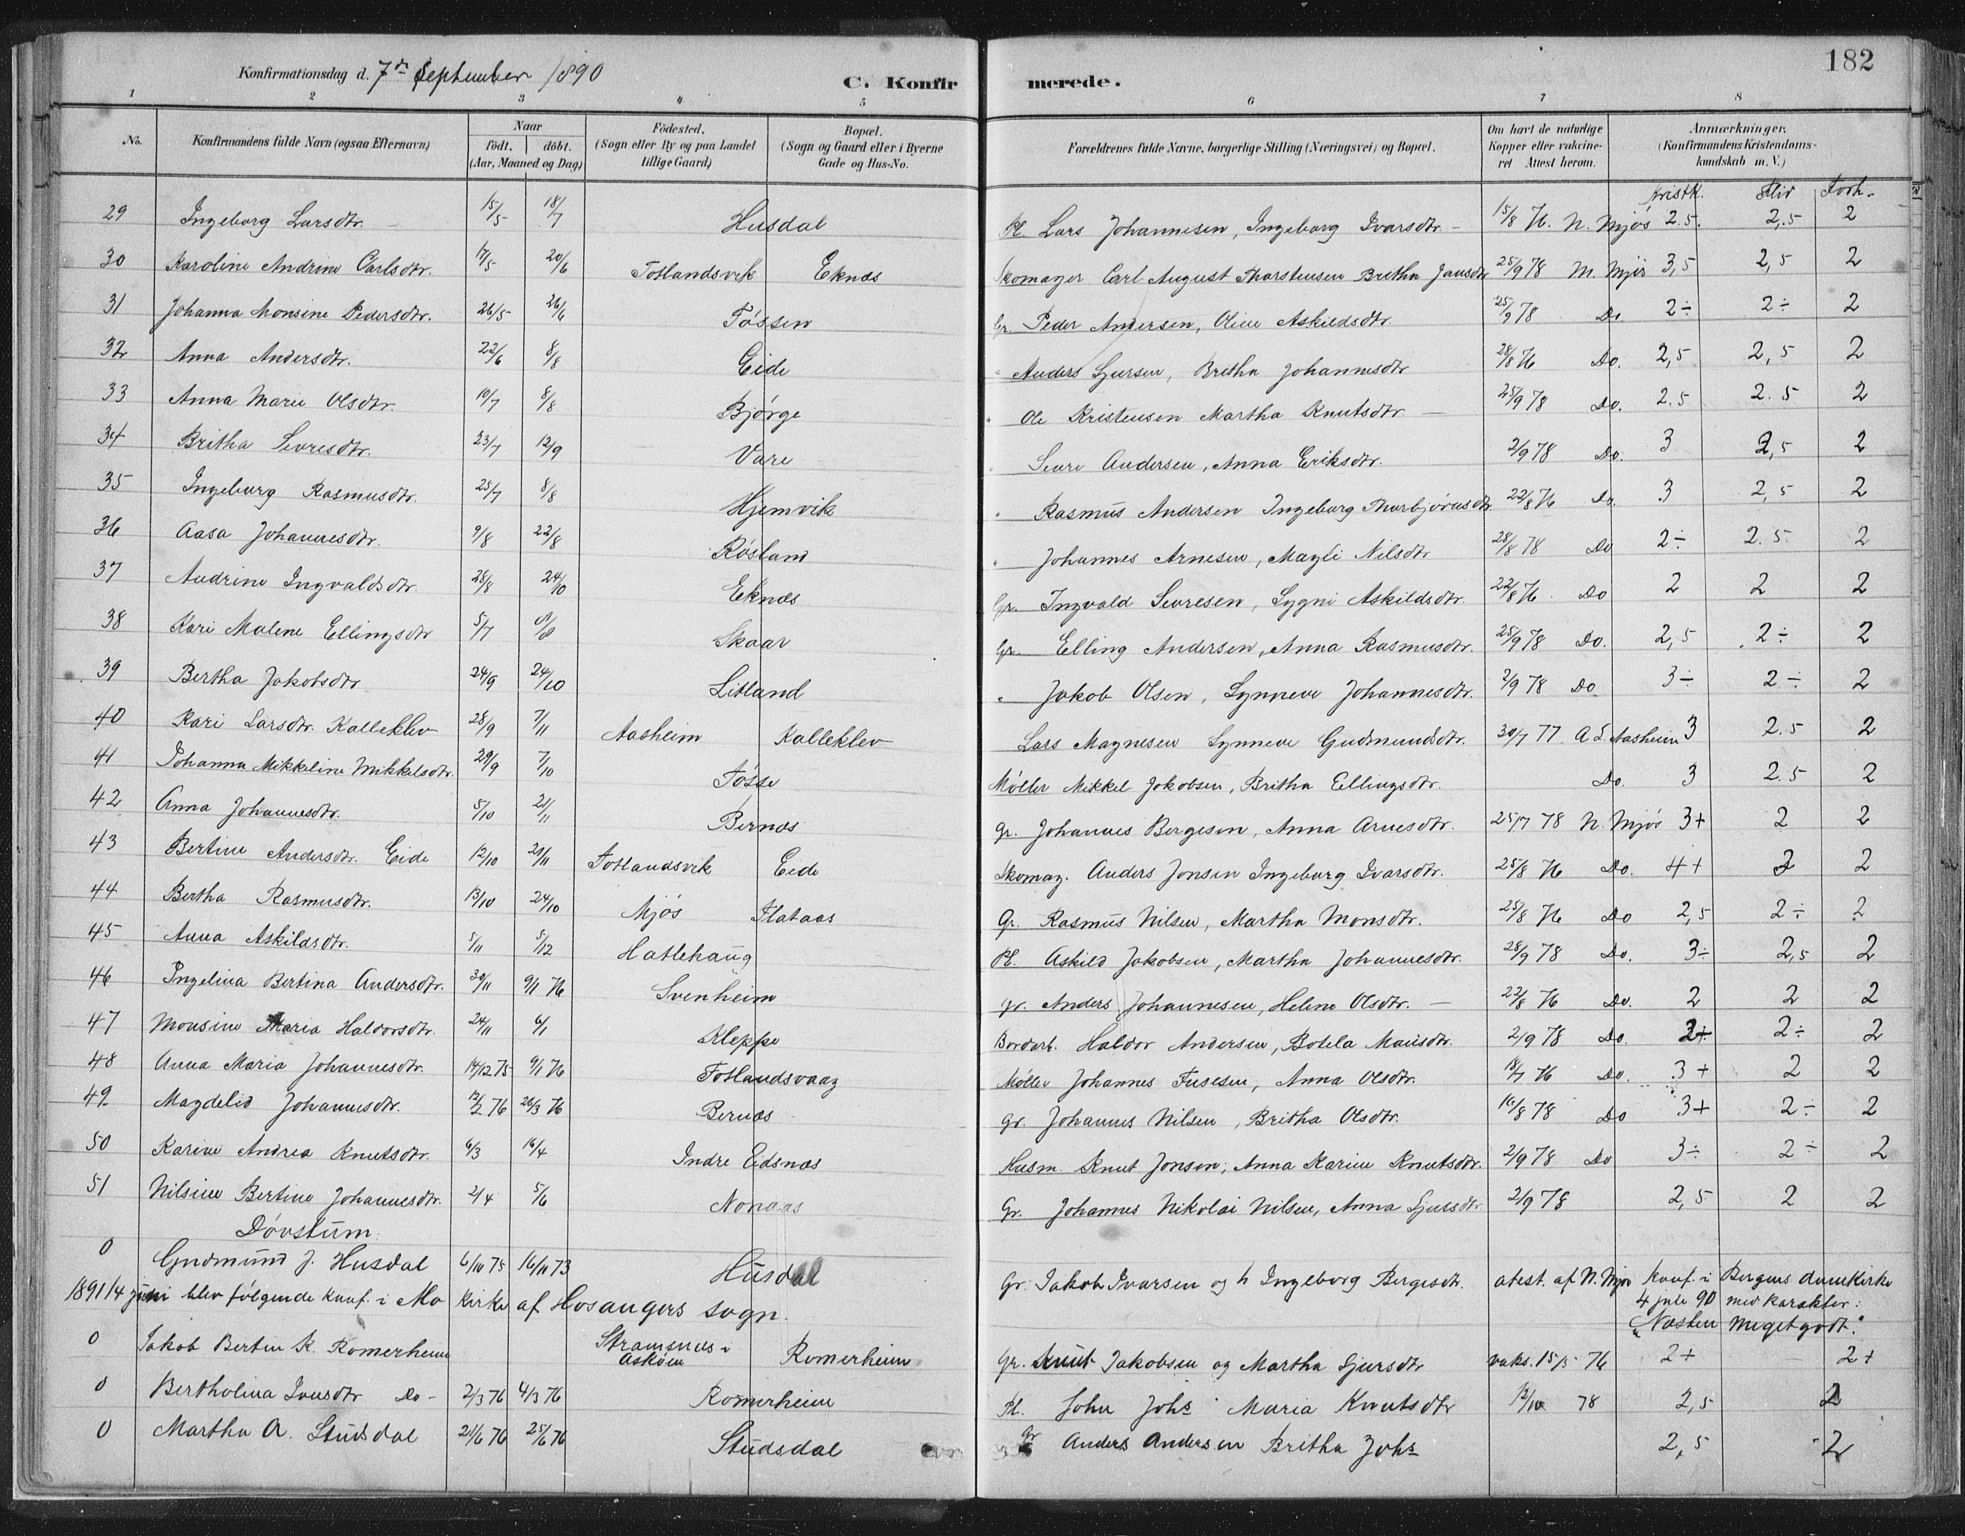 182
Konfirmationsdag d. 7de September 1890 C. Konfirmerede.
1 2 3 4 5 6 7 8
No. Konfirmandens fulde Navn (ogsaa Efternavn) Naar født. døbt. (Aar, Maaned og Dag) Fødested. (Sogn eller By og paa Landet tillige Gaard) Bopæl. (Sogn og Gaard eller i Byerne Gade og Hus-No. Forældrenes fulde Navne, borgerlige Stilling (Næringsvei) og Bopæl. Om havt de naturlige Kopper eller vakcineret Attest herom. Anmærkninger. (Konfirmandens Kristendomskundskab m. V.)
Kristk. Flid Forh.
29 Ingeborg Larsdtr. 15/5 18/7 Husdal Pl. Lars Johannesen, Ingeborg Ivarsdtr. 15/8 76. N. Mjøs 2.5. 2,5 2
30 Karoline Andrine Carlsdtr. 17/5 20/6 Fotlandsvik Eknæs Skomager Carl August Thorstensen Britha Jansdtr 25/9 78 N. Mjøs 3,5 2,5 2
31 Johanna Monsine Pedersdtr. 26/5 26/6 Føssen Gr. Peder Andersen, Oline Askildsdtr. 25/9 78 Do. 2÷ 2÷ 2
32 Anna Andersdtr. 22/6 8/8 Eide " Anders Sjursen, Britha Johannesdtr 28/8 76 Do. 2,5 2,5 2
33 Anna Marie Olsdtr. 10/7 8/8 Bjørge " Ole Kristensen Martha Knutsdtr. 25/9 78 Do. 2.5 2.5 2
34 Britha Sevresdtr. 23/7 12/9 Vare " Sevre Andersen, Anna Eriksdtr. 2/9 78 Do. 3 2,5 2
35 Ingeborg Rasmusdtr. 25/7 8/8 Hjemvik " Rasmus Andersen Ingeborg Thorbjørnsdtr 22/8 76 Do. 3 2,5 2
36 Aasa Johannesdtr. 9/8 22/8 Røsland " Johannes Arnesen, Magli Nilsdtr 28/8 78 Do 2÷ 2.5 2
37 Andrine Ingvaldsdtr. 28/8 24/10 Eknæs Gr. Ingvald Sevresen, Sygni Askildsdtr. 22/8 76. Do 2 2 2
38 Kari Malene Ellingsdtr 5/7 8/8 Skaar Gr. Elling Andersen, Anna Rasmusdtr. 25/9 78 Do. 2,5 2÷ 2
39 Bertha Jakobsdtr 24/9 24/10 Litland " Jakob Olsen, Synneve Johannesdtr. 2/9 78 Do 3÷ 2÷ 2
40 Kari Larsdtr. Kalleklev 28/9 7/11 Aasheim Kalleklev Lars Magnesen Synneve Gudmundsdtr. 30/7 77 A S. Aasheim 3 2.5 2
41 Johanna Mikkeline Mikkelsdtr. 29/9 7/10 Fosse Møller Mikkel Jakobsen, Britha Ellingsdtr. Do. 3 2.5 2
42 Anna Johannesdtr. 5/10 21/11 Bernæs Gr. Johannes Bergeson, Anna Arnesdtr. 25/7 78 N. Mjøs 3+ 2 2
43 Bertine Andersdtr. Eide 12/10 21/11 Fotlandsvik Eide Skomag. Anders Jonsen Ingeborg Ivarsdtr. 25/8 76 Do. 4+ 3 2
44 Bertha Rasmusdtr. 13/10 24/10 Mjøs Flataas Gr. Rasmus Nilsen, Martha Monsdtr. 25/8 76 Do 2,5 2÷ 2
45 Anna Askildsdtr. 5/11 5/12 Hatlehaug Pl. Askild Jakobsen, Martha Johannesdtr. 28/9 78 Do. 3÷ 2,5 2
46 Ingelina Bertina Andersdtr. 30/11 9/1 76 Svenheim Gr. Anders Johannesen, Helene Olsdtr. 22/8 76 Do. 2 2 2
47 Monsine Maria Haldorsdtr. 24/11 6/1 Kleppe Bordarb. Haldor Andersen, Botela Mansdtr. 2/9 78 Do. 2÷ 2÷ 2
48 Anna Maria Johannesdtr. 14/12 75 9/1 76 Fotlandsvaag Møller Johannes Fusesen, Anna Olsdtr. 18/7 76 Do. 3+ 2 2
49 Magdelid Johannesdtr. 12/2 76 26/3 76 Bernæs Gr. Johannes Nilsen, Britha Olsdtr. 16/8 78 Do 3+ 2÷ 2
50 Karine Andrea Knutsdtr. 6/3 16/4 Indre Eidsnæs Husm Knut Jonsen, Anna Karine Knutsdtr. 2/9 78 Do 3÷ 2÷ 2
51 Nilsine Bertine Johannesdtr. 2/4 5/6 Nonaas Gr. Johannes Nikolai Nilsen, Anna Sjursdtr. 2/9 78 2,5 2 2
Døvstum:
0 Gudmund J. Husdal 6/10 75 16/11 73 Husdal Gr. Jakob Ivarsen og h Ingeborg Bergesdtr. atest. af N. Mjøs Konf. i Bergens domkirke
4 juli 90 med karakter:
"Næsten megetgodt."
1891 14 juni blev følgende konf. i Mo Kirke af Hosangers sogn.
0 Jakob Bertin K. Romerheim Stramsnes i Askøen Romerheim Gr. Knut Jakobsen og Martha Sjursdtr vaks. 15/5 76 2+ 2+
0 Bertholina Jonsdtr Do- 2/3 76 4/3 76 Romerheim Pl. John Johs Maria Knutsdtr 12/10 78 2,5 2
0 Martha A. Studsdal 21/6 76 25/6 76 Studsdal Gr Anders Andersen Britha Johs 2,5 2